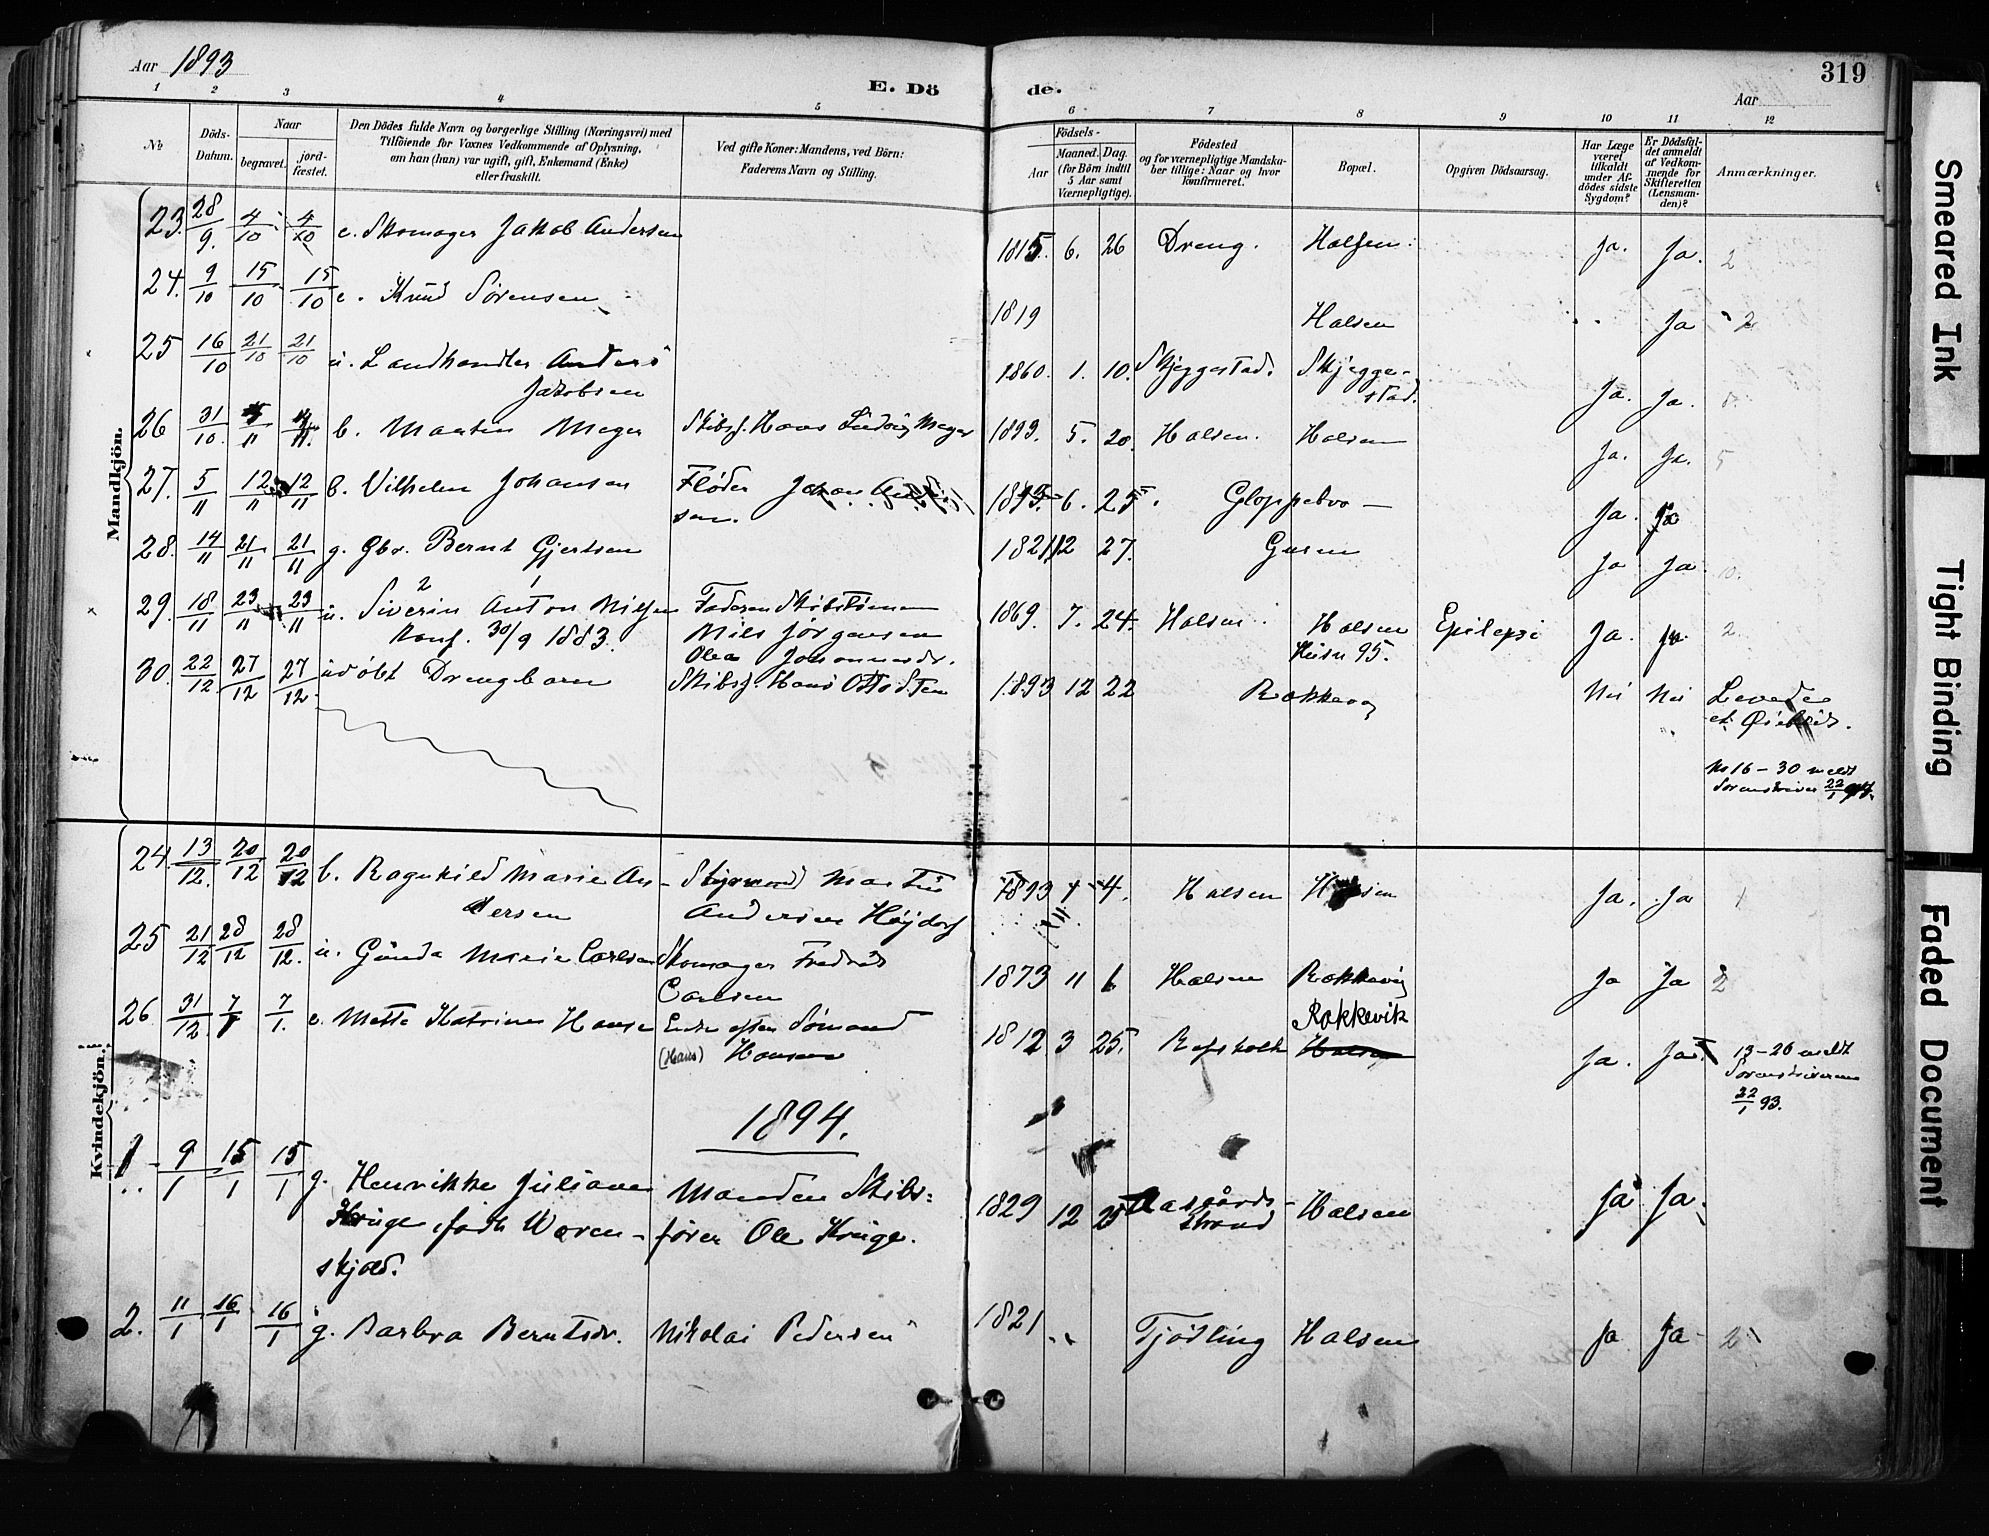 Aar 1893
E. Döde.
319
Aar
1 2 3 4 5 6 7 8 9 10 11 12
No
Döds-Datum.
Naar
begravet.
jord-fæstet.
Den Dödes fulde Navn og borgerlige Stilling (Næringsvei) med
Tilföiende for Voxnes Vedkommende af Oplysning,
om han (hun) var ugift, gift, Enkemand (Enke)
eller fraskilt.
Ved gifte Koner: Mandens, ved Börn:
Faderens Navn og Stilling.
Födsels-
Aar
Maaned.
Dag.
(for Börn indtil
5 Aar samt
Værnepligtige).
Födested
og for værnepligtige Mandska-
ber tillige: Naar og hvor
konfirmeret.
Bopæl.
Opgiven Dödsaarsag.
Har Læge
været
tilkaldt
under Af-
dödes sidste
Sygdom?
Er Dödsfal-
det anmeldt
af Vedkom-
mende for
Skifteretten
(Lensman-
den)?
Anmærkninger.
Mandkjön.
23. 28/9. 4/10 4/10 e. Skomager Jakob Andersen 1815. 6. 26 Dreng. Halsen. Ja. Ja. 2
24. 9/10 15/10 15/10 e. Knud Sörensen 1819 Halsen Ja 2
25 16/10 21/10 21/10 u. Landhandler Anders
Jakobsen 1860. 1. 10. Skjeggestad. Skjegge-
stad. Ja. Ja.
26 31/10. 4/11 4/11. b. Martin Meyer Skibsf. Hans Ludvig Meyer 1893. 5. 20. Halsen. Halsen Ja. Ja. 5
27. 5/11 12/11 12/11 b. Vilhelm Johansen Fløder Johan
sen. 6. 25. Gloppebro — Ja. Ja
28. 14/11 21/11 21/11 g. Gbr. Bernt Gjertsen 1821 12 27. Gusen Ja Ja. 10.
29. 18/11 23/11 23/11 u. Siverin Anton Nilsen Faderen Skibstømm
Konf. 30/9 1883. Nils Jørgensen
Olea Johannesdr. 1869. 7. 24. Halsen. Halsen
Husn 95. Epilepsi Ja. Ja. 2
30. 22/12 27/12 27/12. udöbt Drengbarn Skibsf. Hans Otto Steen 1893 12 22 Rækkevig Nei Nei Levede
et Øieblik.
No 16 – 30 meldt
Sorenskriver 22/1 94.
Kvindekjön.
24. 13/12. 20/12 20/12 b. Ragnhild Marie An-
dersen Styrmand Martin
Andersen Højdorf 1893 4. Halsen Halsen Ja. Ja 1
25 21/12 28/12 28/12. u. Gunda Marie Carlsen Skomager Fredrik
Carlsen 1873 11 6 Halsen Rækkevig Ja Ja 2
26 31/12. 7/1 7/1. e. Mette Katrine Hansen Enke efter Sömand
(Hans) Hansen 1812 3 25. Refsholt Rækkevik
Halsen Ja. Ja. 13–26 meldt
Sorenskriveren
22/1 93.
1894.
1 9/1 15/1 15/1 g. Henrikke Juliane
Krüge, född Wæren-
skjold. Manden Skibs-
fører Ole Krüge. 1829 12 25 Aasgårds-
strand Halsen Ja Ja.
2. 11/1 16/1 16/1 g. Barbra Berntsdr. Nikolai Pedersen 1821 Tjödling Halsen Ja Ja 2
Smeared Ink
Tight Binding
Faded Document